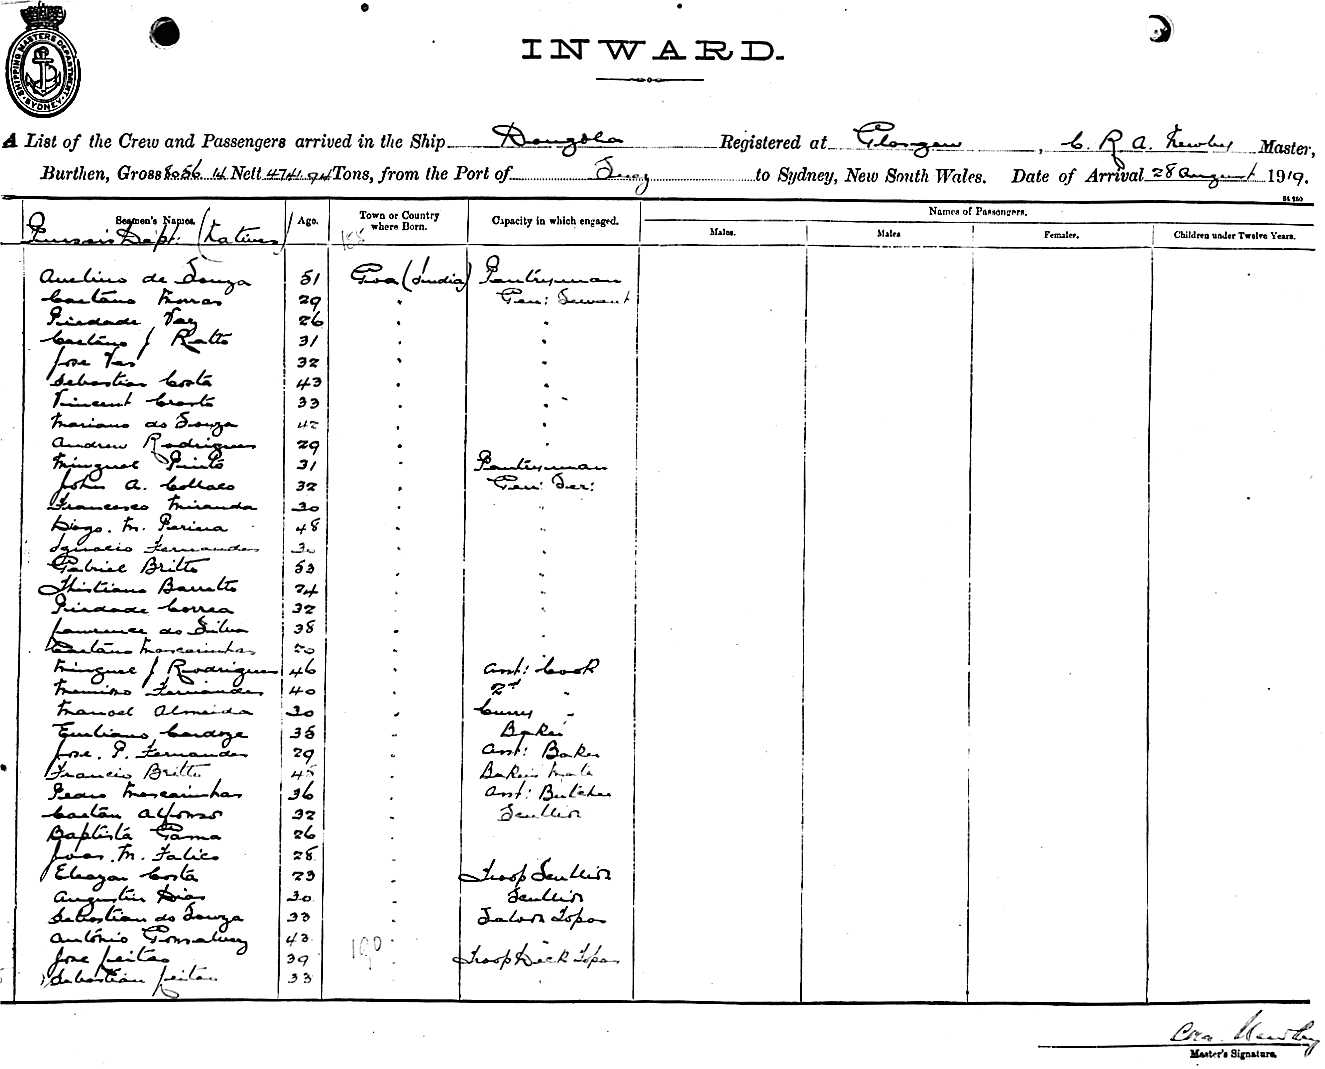 SHIPPING MASTERS DEPARTMENT · SYDNEY ·
INWARD.
A List of the Crew and Passengers arrived in the Ship Dongola Registered at Glasgow, C. R. A. Newby Master,
Burthen, Gross 8056 Nett 4741 Tons, from the Port of Suez to Sydney, New South Wales. Date of Arrival 28 August 1919.
Seamen's Names. Age. Town or Country where Born. Capacity in which engaged. Names of Passengers.
Males. Males Females. Children under Twelve Years.
Pursers Dept: (Natives)
Avelino de Souza 51 Goa (India) Pantryman
Caetano 29 " Gen: Servant
Piedade Vaz 26 " "
Caetano J Ratto 31 " "
Jose Vas 32 " "
Sebastian Costa 43 " "
Vincent 33 " "
Mariano do Souza 42 " "
Andrew Rodrigues 29 " "
Minguel Pinto 31 " Pantryman
John A. Collaco 32 " Gen: Ser:
Francesco Miranda 30 " "
Diogo. M. Periera 48 " "
Ignacio Fernandes " "
Gabriel Britto 53 " "
Barretto 24 " "
Piedade Correa 32 " "
Lawrence do Silva 38 " "
Caetano Mascarinhas "
Minguel J Rodrigues 46 " Asst: Cook
Fernandes 40 " 2nd "
Manoel Almeida 30 " Curry "
Emiliano Cardoze 35 " Baker
Jose. P. Fernandes 29 " Asst: Baker
Francis Britto 45 " Bakers Mate
Pedro Mascarinhas 36 " Asst: Butcher
Caetan Alfonso 32 " Scullion
Baptista Gama 26 "
Joao. M. 28 "
Eleazar Costa 23 " Troop Scullion
Augustin Dias 30 " Scullion
Sebastian do Souza 33 " Saloon Topas
António Gonsalvez 43 " "
Jose Feitas 39 " Troop Deck Topas
Sebastian Feitas 33 "
Newby
Master's Signature.